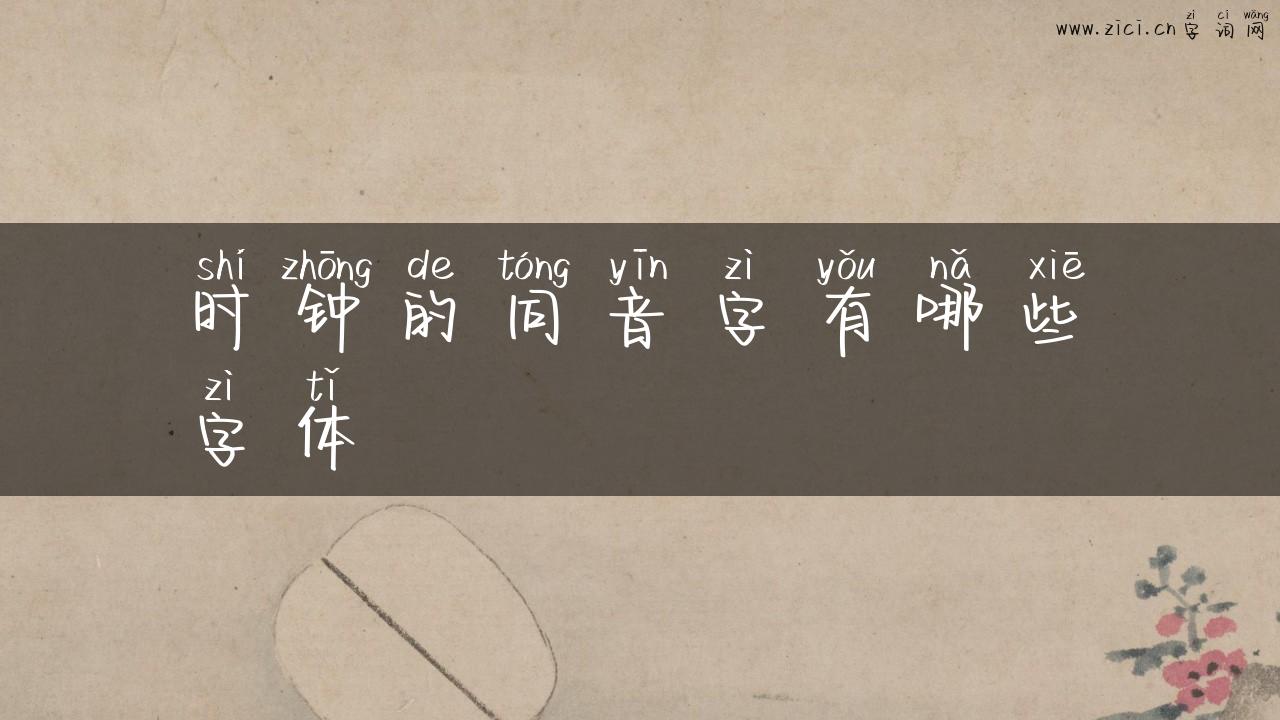 zì cí wǎng
www.zici.cn 字词网
shí zhōng de tóng yīn zì yǒu nǎ xiē
时钟的同音字有哪些
zì tǐ
字体